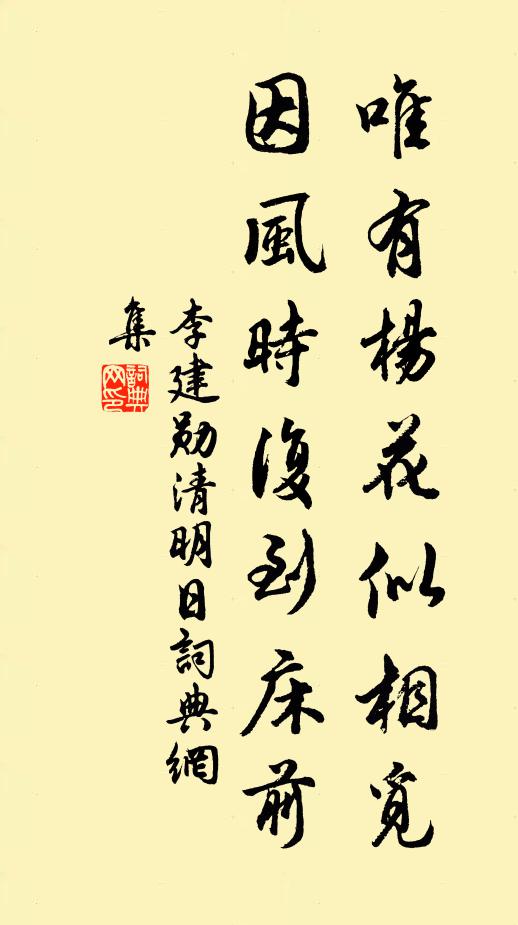 唯有楊花似相覓
因風時復到床前
李建勛清明日詞典網
集
詞典
网印